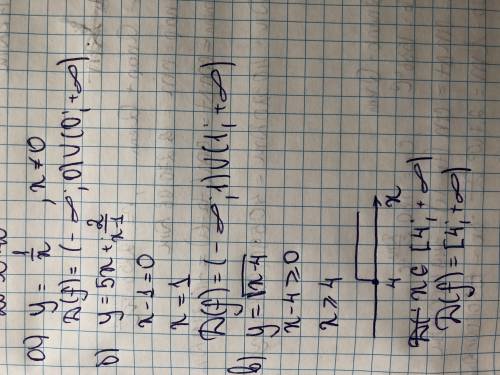 а) y = 1/x , x ≠ 0
D(f) = (-∞; 0) ∪ (0; +∞)
б) y = 5x + 2/(x-1)
x-1=0
x=1
D(f) = (-∞; 1) ∪ (1; +∞)
в) y = √(x-4)
x-4 ≥ 0
x ≥ 4
4 x
x ∈ [4; +∞)
D(f) = [4; +∞)